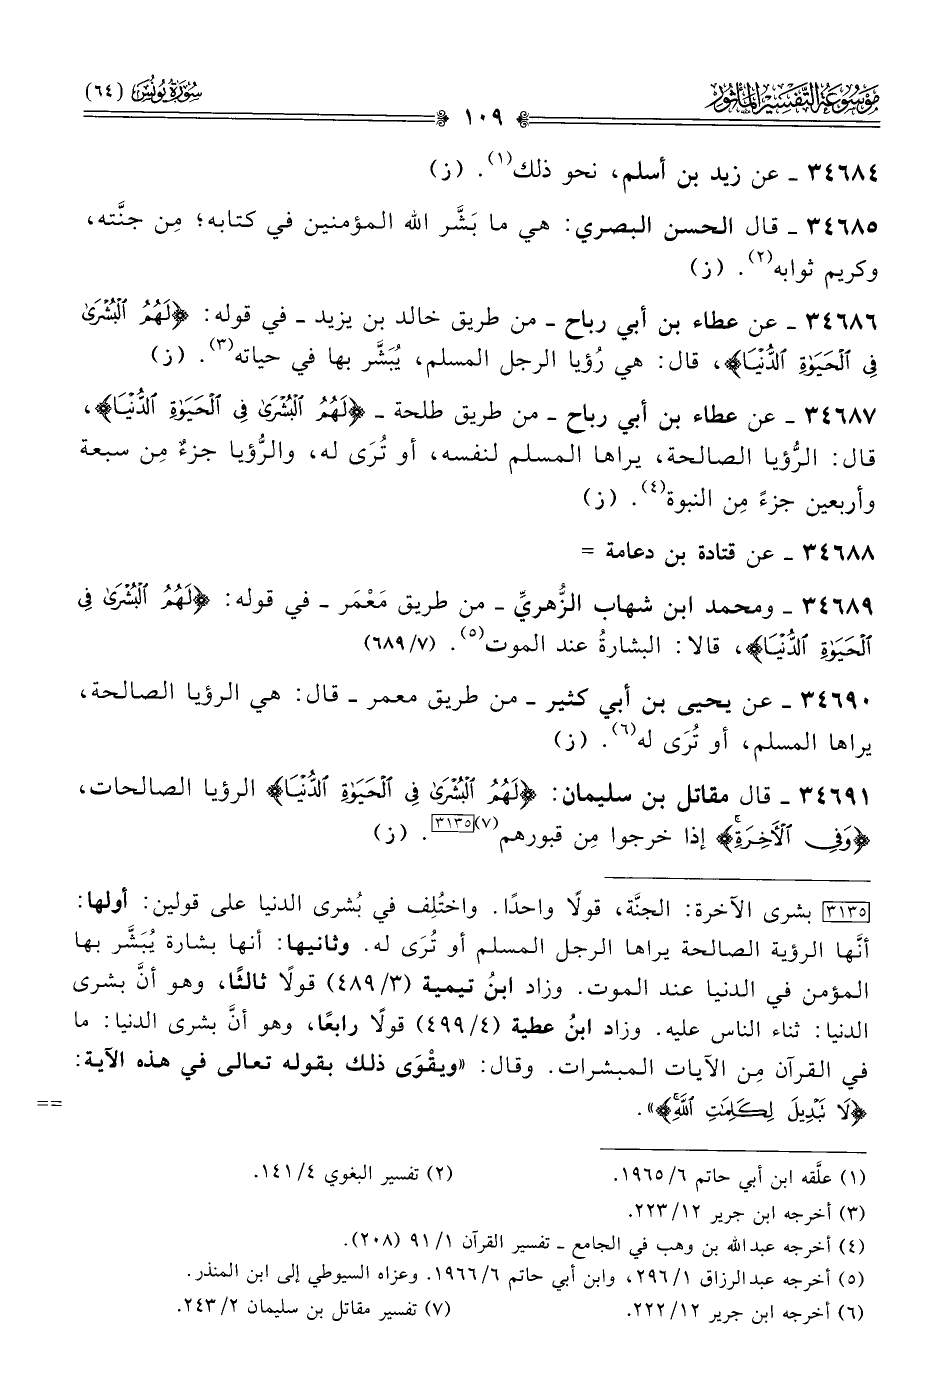 موسوعة التفسير المأثور
سورة يونس (٦٤)
١٠٩
٣٤٦٨٤ ـ عن زيد بن أسلم، نحو ذلك(١). (ز)
٣٤٦٨٥ ـ قال الحسن البصري: هي ما بَشَّر الله المؤمنين في كتابه؛ مِن جنَّته،
وكريم ثوابه(٢). (ز)
٣٤٦٨٦ ـ عن عطاء بن أبي رباح ـ من طريق خالد بن يزيد ـ في قوله: ﴿لَهُمُ ٱلْبُشْرَىٰ
فِى ٱلْحَيَوٰةِ ٱلدُّنْيَا﴾، قال: هي رُؤيا الرجل المسلم، يُبَشَّر بها في حياته(٣). (ز)
٣٤٦٨٧ ـ عن عطاء بن أبي رباح ـ من طريق طلحة ـ ﴿لَهُمُ ٱلْبُشْرَىٰ فِى ٱلْحَيَوٰةِ ٱلدُّنْيَا﴾،
قال: الرُّؤيا الصالحة، يراها المسلم لنفسه، أو تُرَى له، والرُّؤيا جزءٌ مِن سبعة
وأربعين جزءً مِن النبوة(٤). (ز)
٣٤٦٨٨ ـ عن قتادة بن دعامة =
٣٤٦٨٩ ـ ومحمد ابن شهاب الزُّهريِّ ـ من طريق مَعْمَر ـ في قوله: ﴿لَهُمُ ٱلْبُشْرَىٰ فِى
ٱلْحَيَوٰةِ ٱلدُّنْيَا﴾، قالا: البشارةُ عند الموت(٥). (٧/ ٦٨٩)
٣٤٦٩٠ ـ عن يحيى بن أبي كثير ـ من طريق معمر ـ قال: هي الرؤيا الصالحة،
يراها المسلم، أو تُرَى له(٦). (ز)
٣٤٦٩١ ـ قال مقاتل بن سليمان: ﴿لَهُمُ ٱلْبُشْرَىٰ فِى ٱلْحَيَوٰةِ ٱلدُّنْيَا﴾ الرؤيا الصالحات،
﴿وَفِى ٱلْأَخِرَةِۚ﴾ إذا خرجوا مِن قبورهم(٧)[٣١٣٥]. (ز)
[٣١٣٥] بشرى الآخرة: الجنَّة، قولًا واحدًا. واختُلِف في بُشرى الدنيا على قولين: أولها:
أنَّها الرؤية الصالحة يراها الرجل المسلم أو تُرَى له. وثانيها: أنها بشارة يُبَشَّر بها
المؤمن في الدنيا عند الموت. وزاد ابنُ تيمية (٣/ ٤٨٩) قولًا ثالثًا، وهو أنَّ بشرى
الدنيا: ثناء الناس عليه. وزاد ابنُ عطية (٤/ ٤٩٩) قولًا رابعًا، وهو أنَّ بشرى الدنيا: ما
في القرآن مِن الآيات المبشرات. وقال: «ويقْوَى ذلك بقوله تعالى في هذه الآية:
﴿لَا نَبْدِيلَ لِكَلِمَٰتِ ٱللَّهِۚ﴾».
==
(١) علَّقه ابن أبي حاتم ٦/ ١٩٦٥.
(٢) تفسير البغوي ٤/ ١٤١.
(٣) أخرجه ابن جرير ١٢/ ٢٢٣.
(٤) أخرجه عبدالله بن وهب في الجامع ـ تفسير القرآن ١/ ٩١ (٢٠٨).
(٥) أخرجه عبدالرزاق ١/ ٢٩٦، وابن أبي حاتم ٦/ ١٩٦٦. وعزاه السيوطي إلى ابن المنذر.
(٦) أخرجه ابن جرير ١٢/ ٢٢٢.
(٧) تفسير مقاتل بن سليمان ٢/ ٢٤٣.